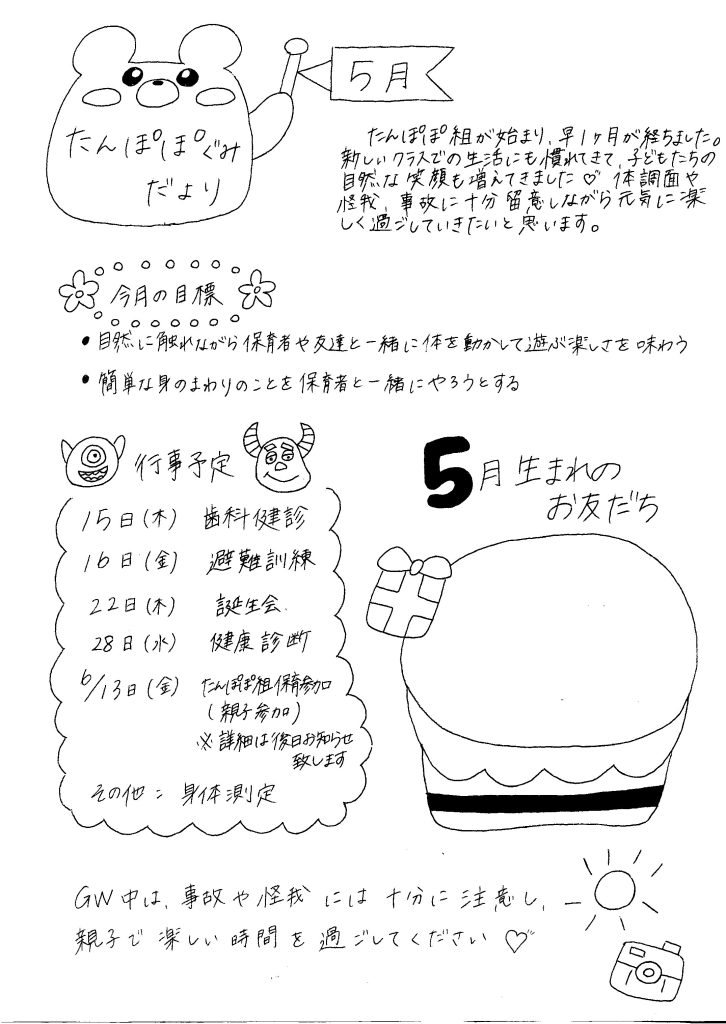 5月
たんぽぽぐみ
だより
たんぽぽ組が始まり、早1ヶ月が経ちました。
新しいクラスでの生活にも慣れてきて、子どもたちの
自然な笑顔も増えてきました♡ 体調面や
怪我、事故に十分留意しながら元気に楽
しく過ごしていきたいと思います。
今月の目標
• 自然に触れながら保育者や友達と一緒に体を動かして遊ぶ楽しさを味わう
• 簡単な身のまわりのことを保育者と一緒にやろうとする
行事予定
15日(木) 歯科健診
16日(金) 避難訓練
22日(木) 誕生会
28日(水) 健康診断
6/13日(金) たんぽぽ組保育参加
(親子参加)
※詳細は後日お知らせ
致します
その他：身体測定
5月生まれの
お友だち
GW中は、事故や怪我には十分に注意し、
親子で楽しい時間を過ごしてください♡